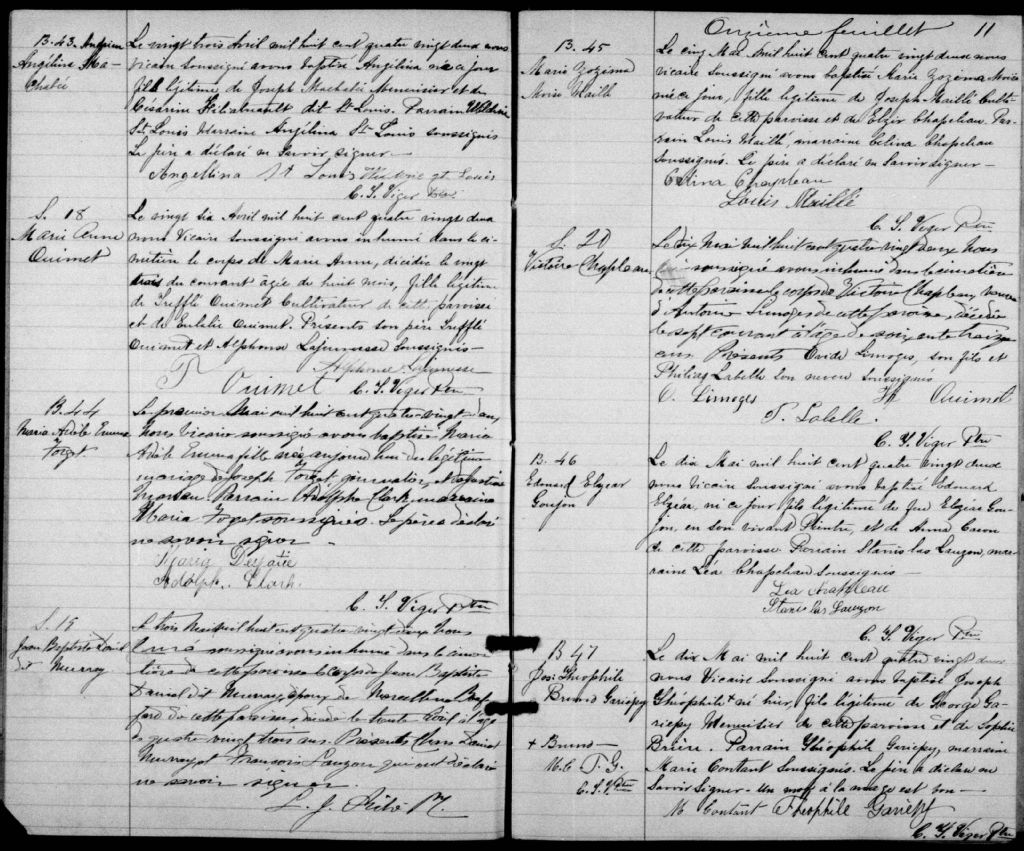 B.43.
Angélina Ma-
chabée
Le vingt trois Avril mil huit cent quatre vingt deux nous
vicaire soussigné avons baptisé Angélina née ce jour
fille légitime de Joseph Machabée Menuisier et de
dit St Louis. Parrain
St Louis Marraine Angélina St Louis soussignés
Le père a déclaré ne savoir signer—
Angellina St Louis
C. S. Viger Ptre
S. 18
Marie Anne
Ouimet
Le vingt six Avril mil huit cent quatre vingt deux
nous Vicaire soussigné avons inhumé dans le ci-
metière le corps de Marie Anne, décédée le vingt
trois du courant âgée de huit mois, fille légitime
de Trefflé Ouimet Cultivateur de cette paroisse
et de Eulalie Ouimet. Présents son père Trefflé
Ouimet et Alphonse Lajeunesse soussignés—
Alphonse Lajeunesse
T Ouimet C. S. Viger Ptre
B. 44
Maria Adèle Emma
Forget
Le premier Mai mil huit cent quatre vingt deux,
Nous Vicaire soussigné avons baptisé Maria
Adèle Emma fille née aujourd'hui du légitime
mariage de Joseph Forget, journalier, et
Moreau Parrain Adolphe Clark, marraine
Maria Forget soussignés. Le père a déclaré
ne savoir signer—
Maria
Adolph. Clark.
C. S. Viger Ptre
S. 19
Jean Baptiste David
dit Murray
Le trois Mai mil huit cent quatre vingt deux Nous
soussigné avons inhumé dans le cime-
tière de cette paroisse le corps de Jean Baptiste
dit Murray époux de Marcelline
de cette paroisse décédé le trente Avril à l'âge
de quatre vingt trois ans. Présents
Murray et François Lauzon qui ont déclaré
ne savoir signer.
Onzième feuillet 11
B. 45
Marie Zozima
Maillé
Le cinq Mai mil huit cent quatre vingt deux nous
vicaire soussigné avons baptisé Marie Zozima
née ce jour, fille légitime de Joseph Maillé Culti-
vateur de cette paroisse et de Elzir Chapleau. Par-
rain Louis Maillé, marraine Celina Chapleau
soussignés. Le père a déclaré ne savoir signer—
Celina Chapleau
Louis Maillé
C. S. Viger Ptre
S. 20
Victoire Chapleau
Le dix Mai mil huit cent quatre vingt deux Nous
soussigné avons inhumé dans le cimetière
de cette paroisse le corps de Victoire Chapleau veuve
d'Antoine Limoges de cette paroisse, décédée
le sept courant à l'âge de soixante treize
ans Présents Ovide Limoges, son fils et
Philias Labelle son neveu soussignés
O. Limoges Ouimet
P. Labelle.
C. S. Viger Ptre
B. 46
Edouard Elzear
Goujon
Le dix Mai mil huit cent quatre vingt deux
nous Vicaire soussigné avons baptisé Edouard
Elzéar, né ce jour, fils légitime de feu Elzear Gou-
jon, en son vivant Peintre, et de Anna Caron
de cette paroisse Parrain Stanislas Lauzon, mar-
raine Léa Chapleau soussignés—
Lea Chapleau
Stanislas Lauzon
C. S. Viger Ptre
B 47
Jos. Théophile
Bruno Gariépy
Le dix Mai mil huit cent quatre vingt deux
nous Vicaire soussigné avons baptisé Joseph
Théophile + né hier, fils légitime de George Ga-
riepy Menuisier de cette paroisse et de Sophie
Brière. Parrain Théophile Gariépy, marraine
Marie Contant soussignés. Le père a déclaré ne
savoir signer - Un mot à la marge est bon—
+ Bruno—
M.C T. G.
C.S.V. Ptre
M Contant Théophile Gariépy
C. S. Viger Ptre